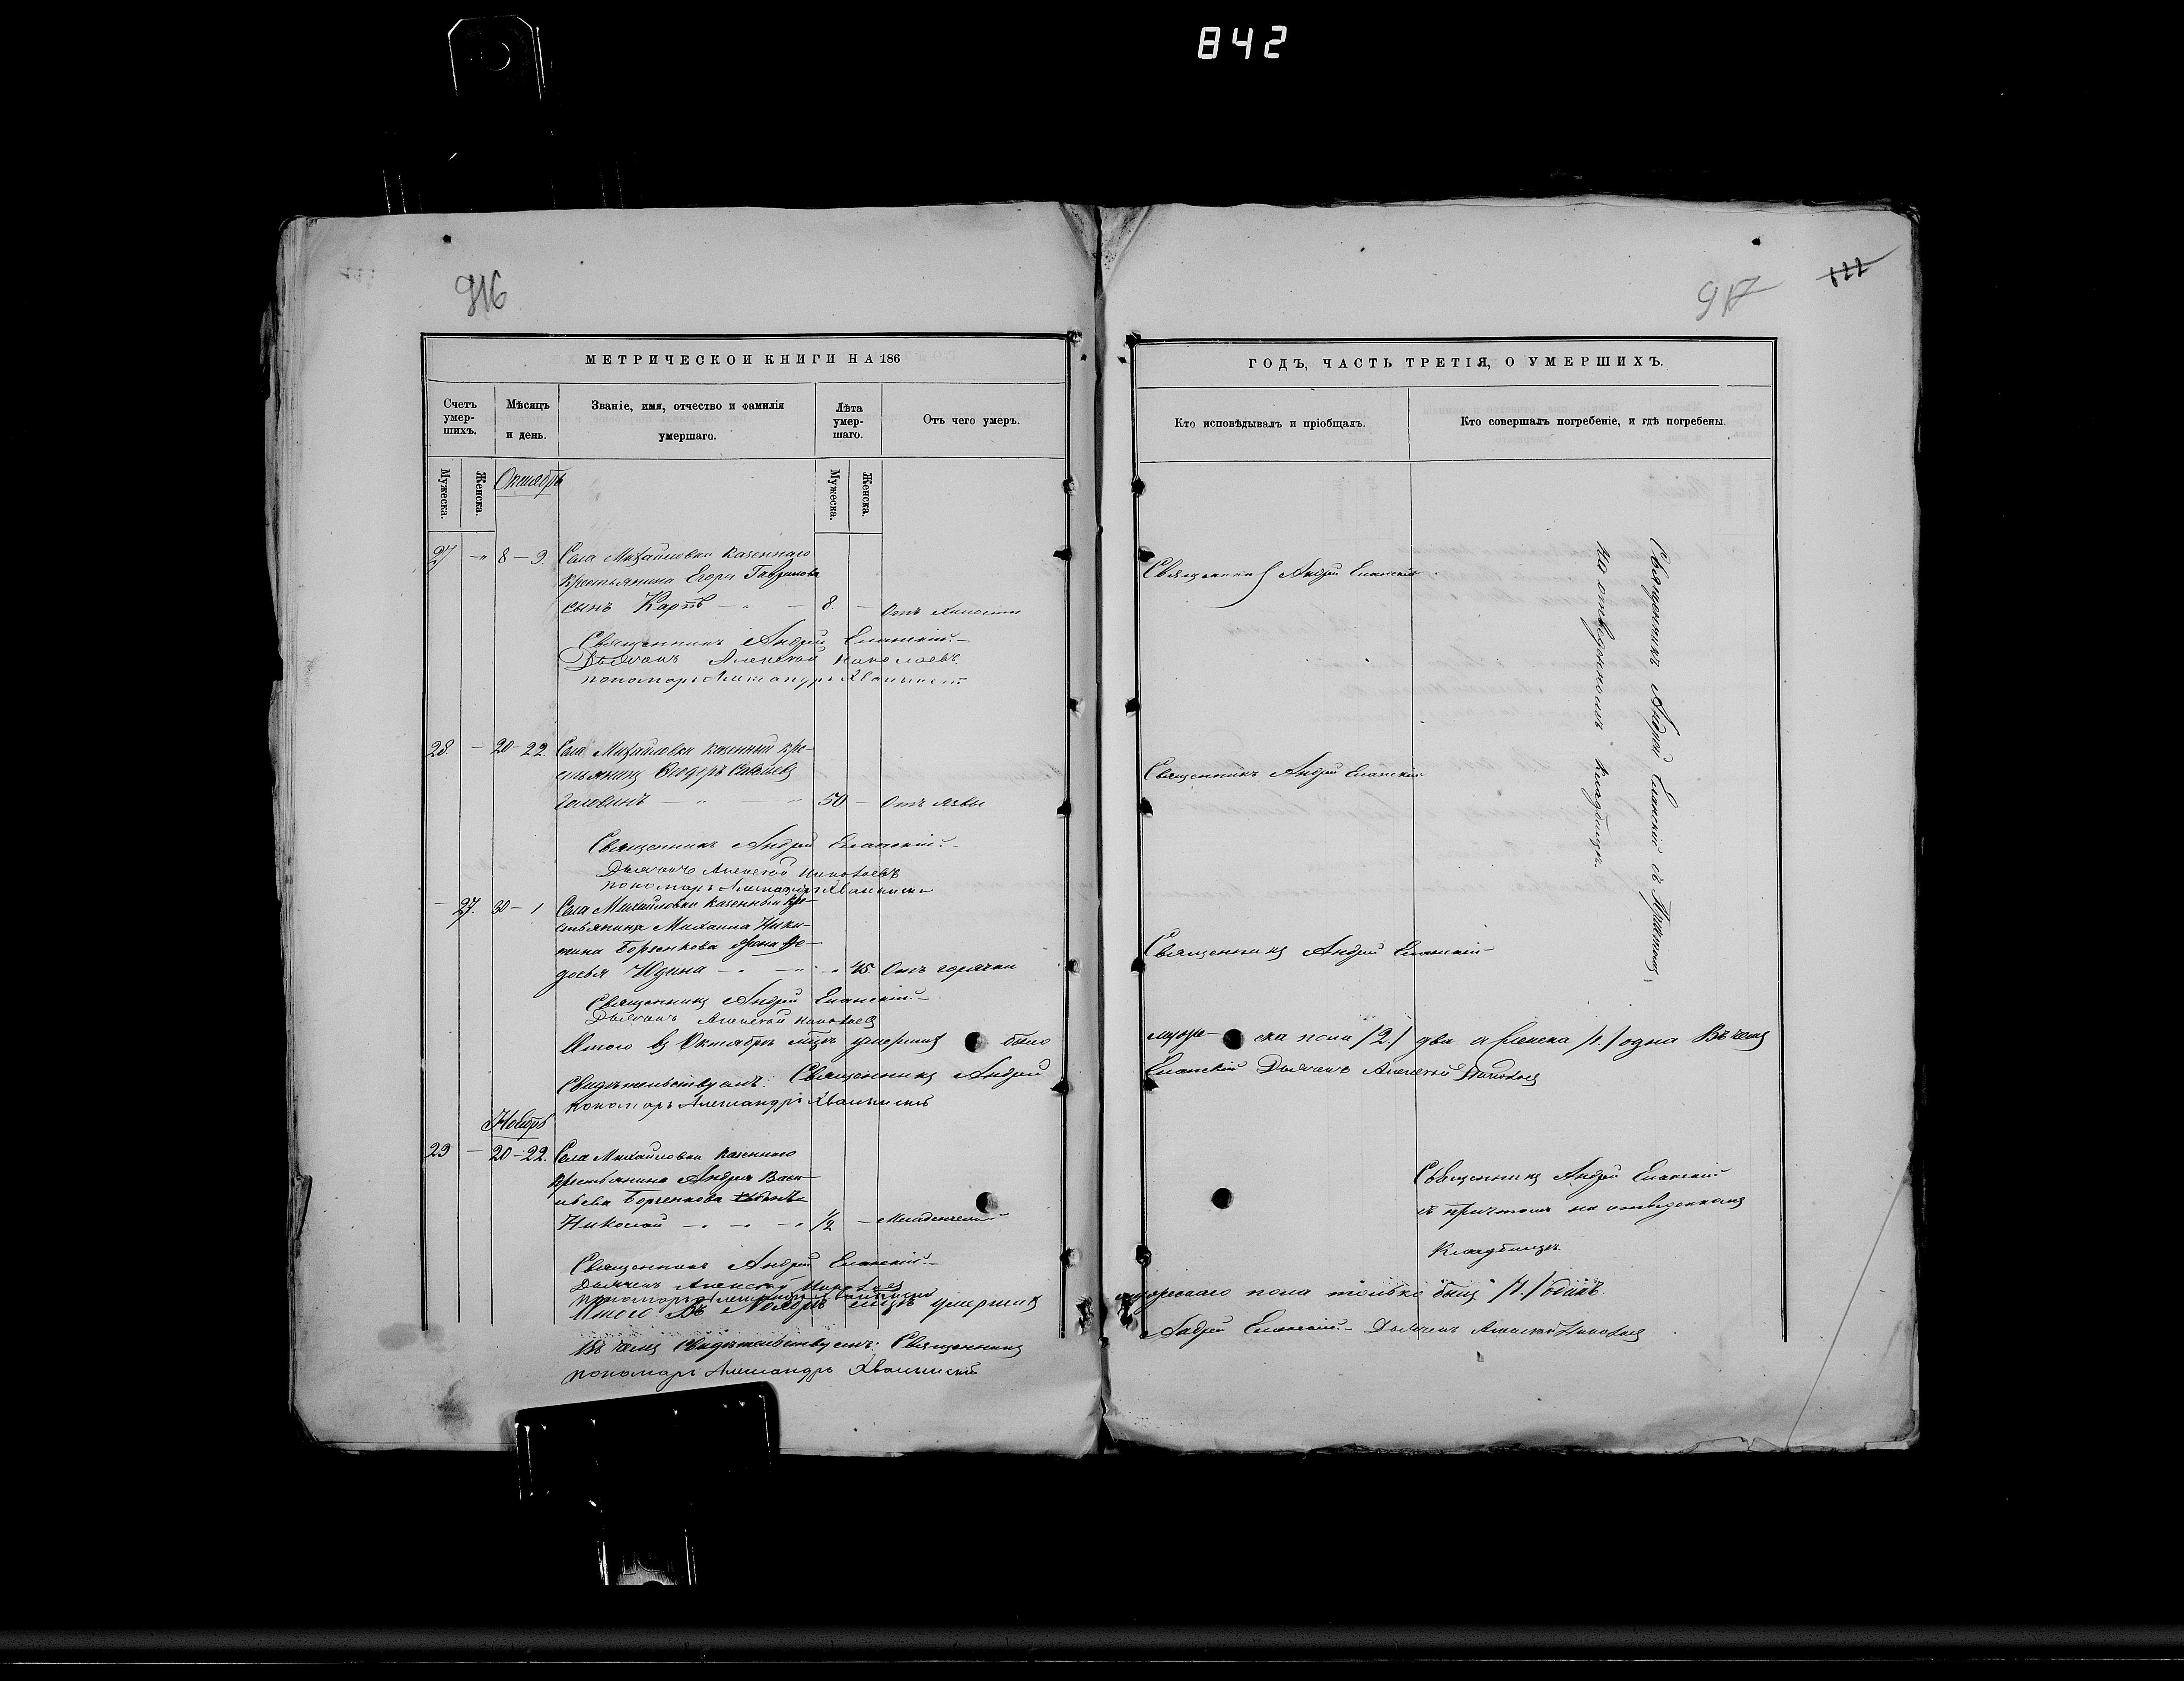 842
916
МЕТРИЧЕСКОЙ КНИГИ НА 186
Счетъ умер-шихъ.
Мѣсяцъ и день.
Званіе, имя, отчество и фамилія умершаго.
Лѣта умер-шаго.
Отъ чего умеръ.
Мужеска.
Женска.
Мужеска.
Женска.
Октябрь
27 - 8 - 9. Села Михайловки казеннаго
крестьянина Егора
сынъ Карпъ - 8. -
Священникъ Андрей Еланскій.-
Дьячокъ Алексѣй Николаевъ
пономарь Александръ Хвалынскій
28 - 20-22 Села Михайловки казенный кре-
стьянинъ Ѳеодоръ
Головинъ - 50 - Отъ язвы
Священникъ Андрей Еланскій.-
Дьячокъ Алексѣй Николаевъ
пономарь Александръ Хвалынскій
- 27. 30 - 1 Села Михайловки казеннаго кре-
стьянина Михаила Ники-
тина жена
Юдина - 45 Отъ горячки
Священникъ Андрей Еланскій.-
Дьячокъ Алексѣй Николаевъ
Итого въ Октябрѣ мцѣ умершихъ было
Свидѣтельствуемъ: Священникъ Андрей
пономарь Александръ Хвалынскій
Ноябрь
29 - 20-22. Села Михайловки казеннаго
крестьянина Андрея Васи-
льева сынъ
Николай - 1/2 - Младенческой
Священникъ Андрей Еланскій.-
Дьячокъ Алексѣй Николаевъ
пономарь Александръ Хвалынскій
Итого Въ Ноябрѣ мцѣ умершихъ
Въ чемъ свидѣтельствуемъ: Священникъ
пономарь Александръ Хвалынскій
917
122
ГОДЪ, ЧАСТЬ ТРЕТІЯ, О УМЕРШИХЪ.
Кто исповѣдывалъ и пріобщалъ.
Кто совершалъ погребеніе, и гдѣ погребены.
Священникъ Андрей Еланскій
Священникъ Андрей Еланскій съ Причтомъ
на отведенномъ кладбищѣ.
Священникъ Андрей Еланскій
Священникъ Андрей Еланскій-
муже- ска пола /2./ два а женска /1./ одна Въ чемъ
Еланскій Дьячокъ Алексѣй Николаевъ
Священникъ Андрей Еланскій
съ причтомъ на отведенномъ
Кладбищѣ.
мужескаго пола только былъ /1./ одинъ.
Андрей Еланскій.- Дьячокъ Алексѣй Николаевъ